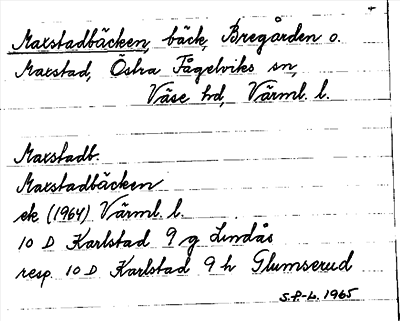 Marstadbäcken, bäck, Bregården o.
Marstad, Östra Fågelviks sn,
Väse hd, Värml. l.
Marstadb.
Marstadbäcken
ek (1964) Värml. l.
10 D Karlstad 9 g Lindås
resp. 10 D Karlstad 9 h Glumserud
S.F-L. 1965